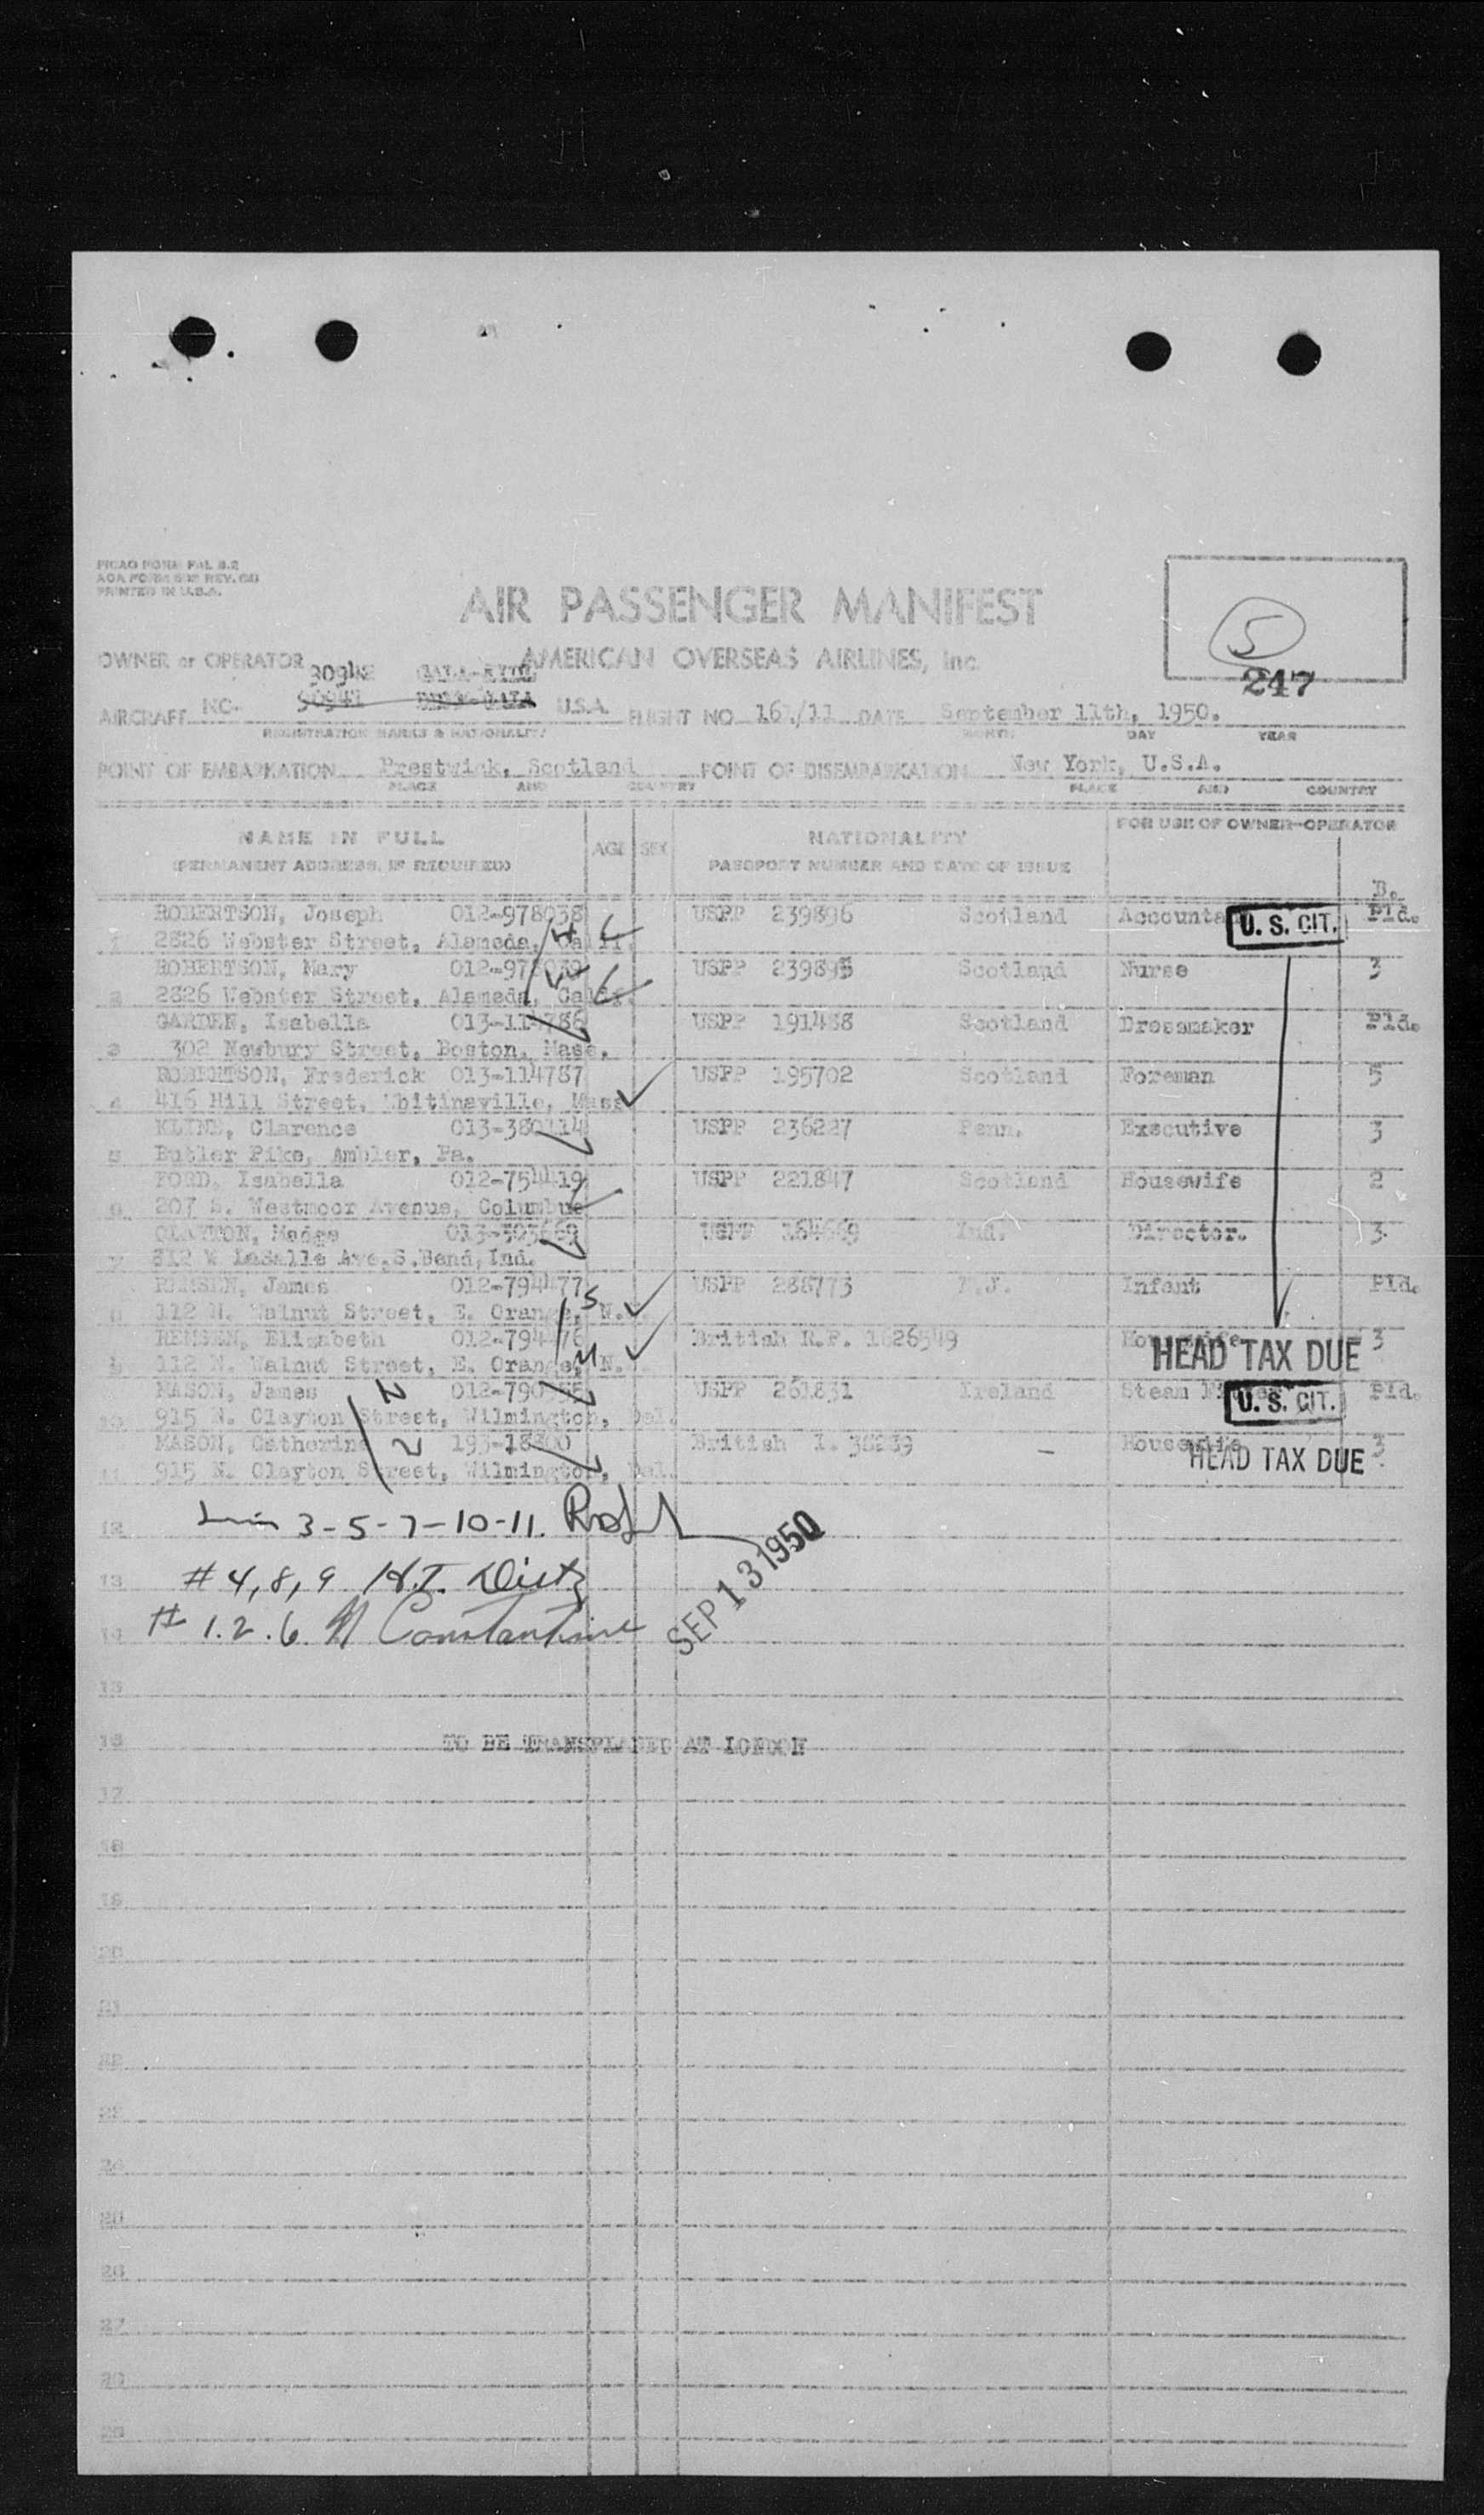 PICAO FORM FAL 8.2
PRINTED IN U.S.A.
AIR PASSENGER MANIFEST
5
247
OWNER or OPERATOR AMERICAN OVERSEAS AIRLINES, Inc.
AIRCRAFT NC- U.S.A. FLIGHT NO. 161/11 DATE September 11th, 1950.
REGISTRATION MARKS & NATIONALITY MONTH DAY YEAR
POINT OF EMBARKATION Prestwick, Scotland POINT OF DISEMBARKATION New York, U.S.A.
PLACE AND COUNTRY PLACE AND COUNTRY
NAME IN FULL AGE SEX NATIONALITY FOR USE OF OWNER-OPERATOR
(PERMANENT ADDRESS, IF REQUIRED) PASSPORT NUMBER AND DATE OF ISSUE
B.
ROBERTSON, Joseph 012-978038 USPP 239896 Scotland U. S. CIT. Pld.
1 2826 Webster Street, Alameda, Calif.
ROBERTSON, Mary USPP Scotland Nurse 3
2 2826 Webster Street, Alameda, Calif.
GARDEN, Isabella 013-114786 USPP 191488 Scotland Dressmaker Pld.
3 302 Newbury Street, Boston, Mass.
ROBERTSON, Frederick 013-114787 USPP 195702 Scotland Foreman 5
4 416 Hill Street, Whitinsville, Mass
KLINE, Clarence 013-380114 USPP 236227 Penn. Executive 3
5 Butler Pike, Ambler, Pa.
FORD, Isabella 012-754419 USPP 221847 Scotland Housewife 2
6 207 S. Westmoor Avenue, Columbus
Madge USPP 164669 Ind. Director. 3
7 812 W LaSalle Ave.S.Bend, Ind.
REMSEN, James 012-794477 USPP 288773 N.J. Infant Pld.
8 112 N. Walnut Street, E. Orange, N.J.
REMSEN, Elizabeth 012-794476 British R.P. 1626549 Housewife 3
HEAD TAX DUE
9 112 N. Walnut Street, E. Orange, N.J.
MASON, James USPP 261831 Ireland Steam Pld.
U. S. CIT.
10 915 N. Clayton Street, Wilmington, Del.
MASON, Catherine British I. 38239 Housewife 3
HEAD TAX DUE
11 915 N. Clayton Street, Wilmington, Del.
12 3-5-7-10-11.
13 # 4, 8, 9 H.T. Dietz
SEP 13 1950
14 # 1. 2. 6. Constantine
15
16 TO BE TRANSPLANED AT LONDON
17
18
19
20
21
22
23
24
25
26
27
28
29